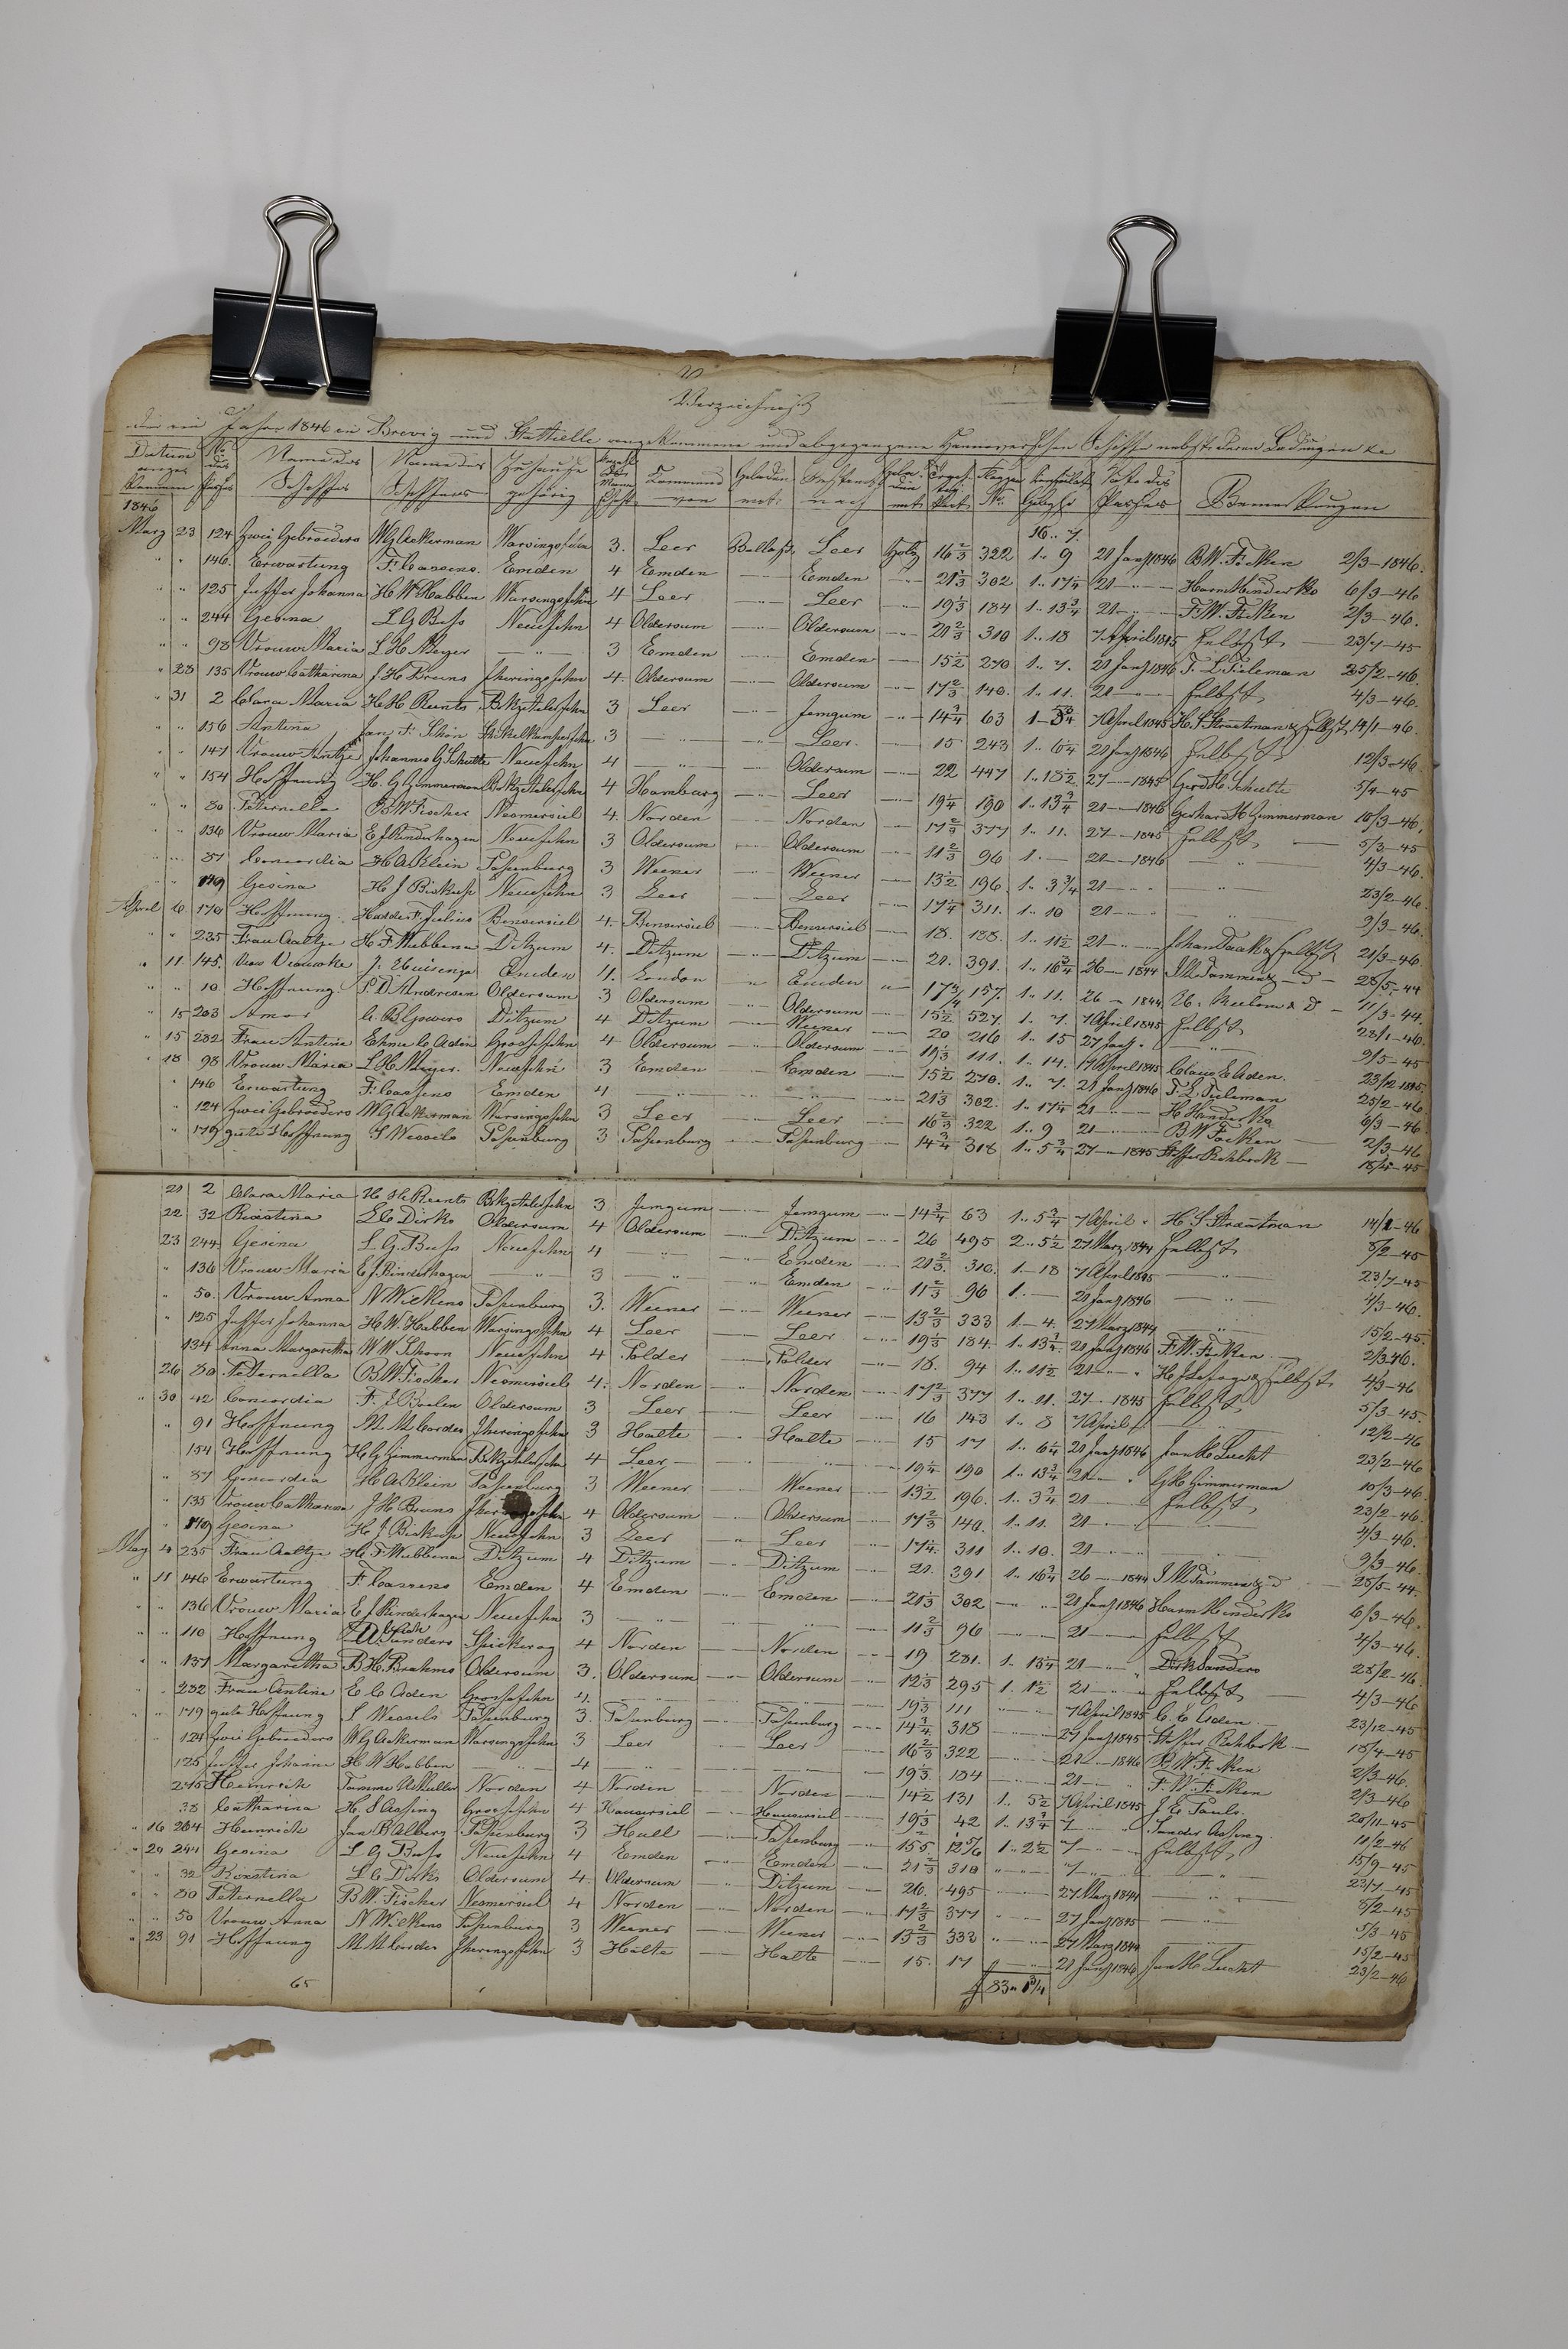 Verzeichniß
Jahre 1846 in Brevig und Stathelle angekommene und abgegangene Hannoverschen Schiffe nebst deren Ladungen &c
Datum No des Passes Name des Schiffes Name des Schiffers Zuhause gehörig Kommend von Geladen mit Bestimt nach Flagge No Date des Passes Bemerkungen
1846
Marz 23 124 Zwei Gebroeders W G Ackerman Warsingsfehn 3. Leer Ballast Leer Holz 16 2/3 322 1.. 9 21 Janʳ 1846 B W. Focken 2/3-1846.
" " 146 Erwartung F. Cassens. Emden 4 Emden —"— Emden —"— 21 1/3 302 1.. 17 1/4 21 —"— Harm Hinderks 6/3-46
" " 125 Juffer Johanna H W Habben Warsingsfehn 4 Leer —"— Leer —"— 19 1/3 184 1.. 13 3/4 21 —"— F. W. Focken 2/3-46.
" " 244 Gesina L G Buss Neuefehn 4 Oldersum —"— Oldersum —"— 21 2/3 310 1.. 18 7 April 1845 Selbst 23/7-45
" " 98 Vrouw Maria L H Meyer —"— 3 Emden —"— Emden —"— 15 1/2 270 1.. 7. 21 Janʳ 1846 T. L Tieleman 25/2-46.
" 28 135 Vrouw Catharina J H Bruns Jheringsfehn 4. Oldersum —"— Oldersum —"— 17 2/3 140. 1.. 11. 21 —"— Selbst 4/3-46.
" 31 2 Clara Maria H H Reents 3 Leer —"— Jemgum —"— 14 3/4 63 7 April 1845 H. S. Straatman & Selbst 14/1-46.
" 156 Antina Jan F. Schön 3 —"— Leer. —"— 15 243 1.. 6 1/4 21 Janʳ 1846 Selbst 12/3-46
" 147 Vrouw Antje Johannes G Schulte Neuefehn 4 —"— Oldersum —"— 22 447 1.. 18 1/2 27 — 1845 Gerd H. Schulte 5/4-45
" " 154 Hoffnung H. G Zimmerman 4 Hamburg —"— Leer —"— 19 1/4 190 1.. 13 3/4 21 — 1846 Gerhard H Zimmerman 10/3-46.
" 80 Peternella B W Fischer Nesmersiel 4. Norden —"— Norden —"— 17 2/3 377 1.. 11. 27 — 1845 Selbst 5/3-45
" 136 Vrouw Maria E J Rinderhagen Neuefehn 3 Oldersum —"— Oldersum —"— 11 2/3 96 1. — 21 — 1846 —"— 4/3-46.
" 87 Concordia H A Klein Papenburg 3 Weener —"— Weener —"— 13 1/2 196. 1.. 3 3/4 21 —"— —"— 23/2-46.
" Gesina H J Biskup Neuefehn 3 Leer —"— Leer —"— 17 1/4 311. 1.. 10 21 —"— —"— 9/3-46.
April 6 170 Hoffnung. Bensersiel 4. Bensersiel —"— Bensersiel —"— 18. 188. 1.. 11 1/2 21 —"— 21/3-46.
" " 235 Frau Aaltje H F Wübbena Ditzum 4. Ditzum —"— Ditzum —"— 21. 391. 1.. 16 3/4 26 — 1844 25/5-44
" 11. 145. J. Emden 4. London " Emden " 157. 1.. 11. 26 — 1844 11/3-44.
" " 10 Hoffnung. P D Andresen Oldersum 3 Oldersum —"— Oldersum —"— 15 1/2 527 1. 7. 7 April 1845 Selbst 28/1-46
" 15 203 Amor Ditzum 4 Ditzum —"— Weener —"— 20 216 1.. 15 27 Janʳ " —"— 9/5-45
" 15 232 Frau Antina Ehme C Aden Grossefehn 4 Oldersum —"— Oldersum —"— 19 1/3 111. 1.. 14. 7 April 1845 Claas E Aden. 23/12 1845
" 18 98 Vrouw Maria L H Meyer. Neuefehn 3 Emden —"— Emden —"— 15 1/2 270. 1.. 7. 21 Janʳ 1846 T. L. Tieleman 25/2-46
" 146 Erwartung F. Cassens Emden 4 —"— —"— 21 1/3 302. 1.. 17 1/4 21 —"— H Hinderks 6/3-46
" 124 Zwei Gebroeders W G Ackerman Warsingsfehn 3 Leer —"— Leer —"— 16 2/3 322 1.. 9 21 —"— B W Focken 2/3-46
" 179 gute Hoffnung S Wessels Papenburg 3 Papenburg —"— Papenburg —"— 14 3/4 318 1.. 5 3/4 27 — 1845 18/4-45
21 2 Clara Maria H H Reents 3 Jemgum —"— Jemgum —"— 14 3/4 63 1.. 5 3/4 7 April " H. S Straatman 14/1-46
22 32 L C Dirks Oldersum 4 Oldersum —"— Ditzum —"— 26 495 2.. 5 1/2 27 Marz 1844 Selbst 8/2-45
23 244 Gesina L G. Buss Neuefehn 4 —"— Emden —"— 21 2/3. 310. 1 — 18 7 April 1845 —"— 23/7-45
" 136 Vrouw Maria E J Rinderhagen —"— 3 —"— Emden —"— 11 2/3 96 1. — 21 Janʳ 1846 —"— 4/3-46.
" 50. Vrouw Anna N Wilkens Papenburg 3. Weener —"— Weener —"— 13 2/3 333 1.. 4. 27 Marz 1844 —"— 15/2-45.
" 125 Juffer Johanna H W. Habben Warsingsfehn 4 Leer —"— Leer —"— 19 1/3 184. 1.. 13 3/4. 21 Janʳ 1846 F. W. Focken. 2/3-46.
134 Anna Margaretha W W Schoon Neuefehn 4 Polder —"— Polder —"— 18. 94 1.. 11 1/2 21 —"— 4/3-46
26 80 Peternella B W Fischer Nesmersiel 4. Norden —"— Norden —"— 17 2/3 377 1.. 11. 27 — 1845 Selbst 5/3-45.
" 30 42 Concordia F. J Boelen Oldersum 3 Leer —"— Leer —"— 16 143 1.. 8 7 April —"— 12/2-46
" 91 Hoffnung M M Cordes Jheringsfehn 3 Halte —"— Halte —"— 15 17 1.. 6 1/4 21 Janʳ 1846 Jan H. Lucht 23/2-46
154 Hoffnung H G Zimmerman 4 Leer —"— —"— 19 1/4 190 1.. 13 3/4 21 —"— G H. Zimmerman 10/3-46.
" 87 Concordia H A Klein Papenburg 3 Weener Weener —"— 13 1/2 196. 1.. 3 3/4 21 Selbst 23/2-46.
" 135 Vrouw Catharina J H Bruns 4 Oldersum —"— Oldersum —"— 17 2/3 140. 1.. 11. 21 —"— —"— 4/3-46.
" Gesina H J Biskup Neuefehn 3 Leer " Leer —"— 17 1/4 311 1.. 10. 21 —"— —"— 9/3-46.
May 4 235 Frau Aaltje H F Wübbena Ditzum 4 Ditzum —"— Ditzum —"— 21. 391 1.. 16 3/4 26 — 1844 25/5-44.
" 11 146 Erwartung F. Cassens Emden 4 Emden —"— Emden —"— 21 1/3 302 —"— 21 Janʳ 1846 Harm Hinderks 6/3-46.
" 136 Vrouw Maria E J Rinderhagen Neuefehn 3 —"— —"— 11 2/3 96 —"— 21 —"— Selbst 4/3-46.
" " 110 Hoffnung Sanders Spiekerog 4 Norden —"— Norden —"— 19 281. 1.. 13 1/4 21 —"— Dirk Sanders 28/2-46.
" " 137 Margaretha B H. Brahms Oldersum 3. Oldersum —"— Oldersum —"— 12 1/3 295 1. 1 1/2 21 —"— Selbst 4/3-46
" 232 Frau Antina E C Aden Grossefehn 4. —"— —"— 19 1/3 111 —"— 7 April 1845 C. E Aden 23/12-45
" " 179 gute Hoffnung S Wessels Papenburg 3. Papenburg —"— Papenburg —"— 14 3/4 318 —"— 27 Janʳ 1845 18/4-45
" 124 Zwei Gebroeders W G Ackerman Warsingsfehn 3 Leer —"— Leer —"— 16 2/3 322 —"— 21 — 1846 B. W. Focken 2/3-46.
125 Juffer Johanna H W Habben —"— 4 —"— —"— 19 1/3. 184 —"— 21 —"— F. W. Focken 2/3-46
Heinrich Norden 4 Norden —"— Norden —"— 14 1/2 131 1. 5 1/2 7 April 1845 J. E Pauls. 20/11-45
38 Catharina Grossefehn 4 —"— —"— 19 1/3 42 1.. 13 3/4 7 —"— 11/2-46
" 16 204 Heinrich Jan B Albers Papenburg 3 Hull —"— Papenburg —"— 1.. 2 1/2 7 —"— Selbst 15/9-45
" 20 244 Gesina L G Buss Neuefehn 4 Emden —"— Emden —"— 21 2/3 310 —"— 7 —"— —"— 23/7-45
" " 32 L C Dirks Oldersum 4. Oldersum —"— Ditzum —"— 26. 495 —"— 27 Marz 1844 —"— 8/2-45
" " 80 Peternella B W. Fischer Nesmersiel 4 Norden —"— Norden —"— 17 2/3 377 —"— 27 Janʳ 1845 —"— 5/3-45
" " 50 Vrouw Anna N Wilkens Papenburg 3 Weener —"— Weener —"— 13 2/3 333 —"— 27 Marz 1844 —"— 15/2-45
" 23 91 Hoffnung M M Cordes Jheringsfehn 3 Halte —"— Halte —"— 15. 17 —"— 21 Janʳ 1846 Jan H Lucht 23/2-46
65